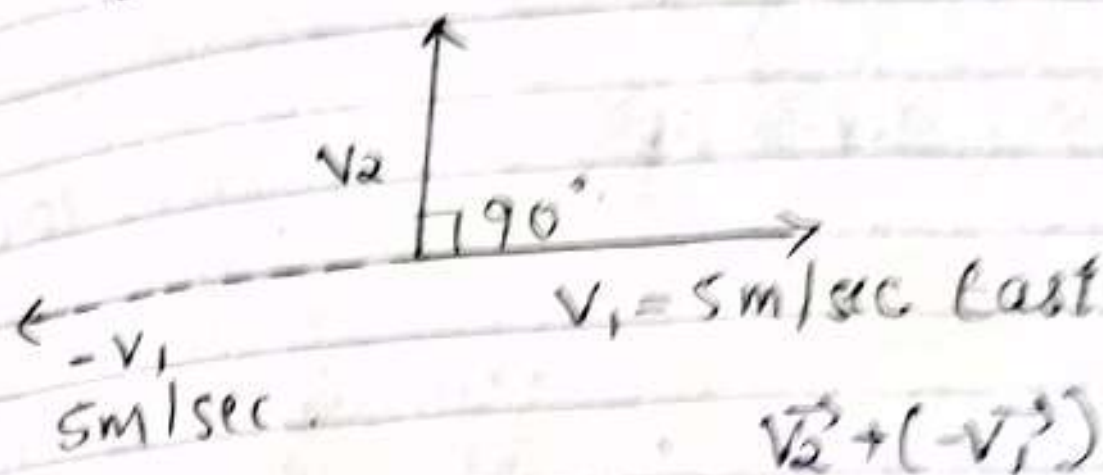 V2
90°
V1 = 5m/sec East
-V1
5m/sec.
V⃗2 + (-V⃗1)